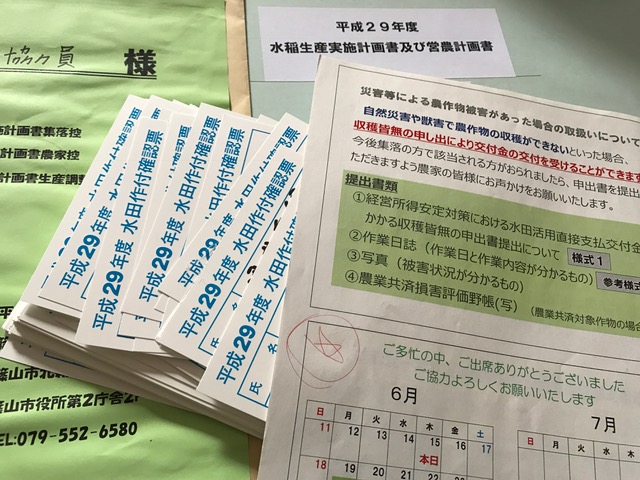 協力員 様
施計画書集落控
計画書農家控
計画書生産調整
篠山市北
篠山市役所第2庁舎2
TEL:079-552-6580
平成29年度
水稲生産実施計画書及び営農計画書
平成29年度 水田作付確認票
平成29年度 水田作付確認票
平成29年度 水田作付確認票
平成29年度 水田作付確認票
平成29年度 水田作付確認票
氏
災害等による農作物被害があった場合の取扱いについて
自然災害や獣害で農作物の収穫ができないといった場合、
収穫皆無の申し出により交付金の交付を受けることができます
今後集落の方で該当される方がおられましたら、申出書を提出
ただきますよう農家の皆様にお声かけをお願いいたします。
提出書類
①経営所得安定対策における水田活用直接支払交付金
かかる収穫皆無の申出書提出について 様式1
②作業日誌(作業日と作業内容が分かるもの)
③写真(被害状況が分かるもの) 参考様式
④農業共済損害評価野帳(写) (農業共済対象作物の場合
ご多忙の中、ご出席ありがとうございました
ご協力よろしくお願いいたします
6月
日 月 火 水 木 金 土
11 12 13 14 15 16 17
本日
18 19 20 21 22
7月
日 月 火 水